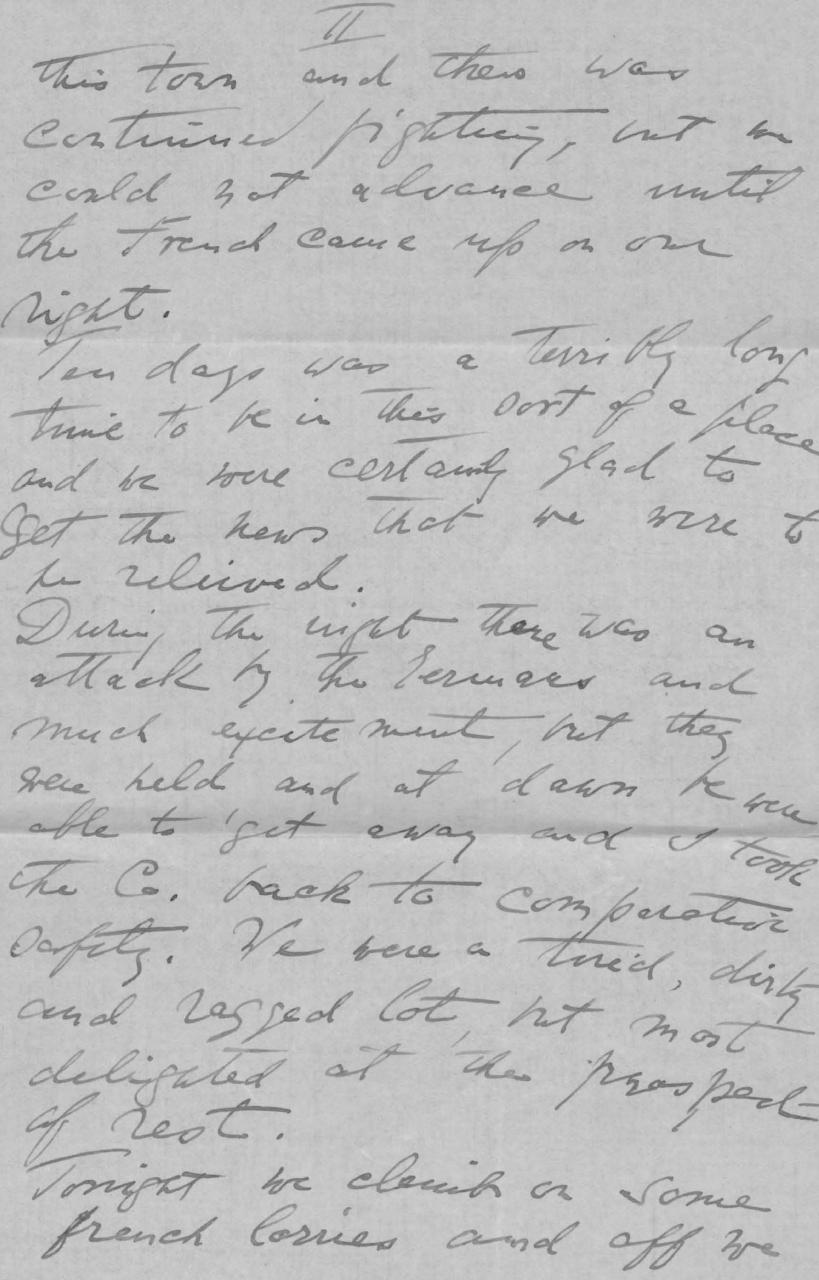 II
this town and there was
continued fighting, but we
could not advance until
the French came up on our
right.
Ten days was a terribly long
time to be in this sort of a place
and we were certainly glad to
get the news that we were to
be relieved.
During the night there was an
attack by the Germans and
much excitement, but they
were held and at dawn we were
able to get away and I took
the Co. back to comparative
safety. We were a tired, dirty
and ragged lot, but most
delighted at the prospect
of rest.
Tonight we climb on some
french lorries and off we